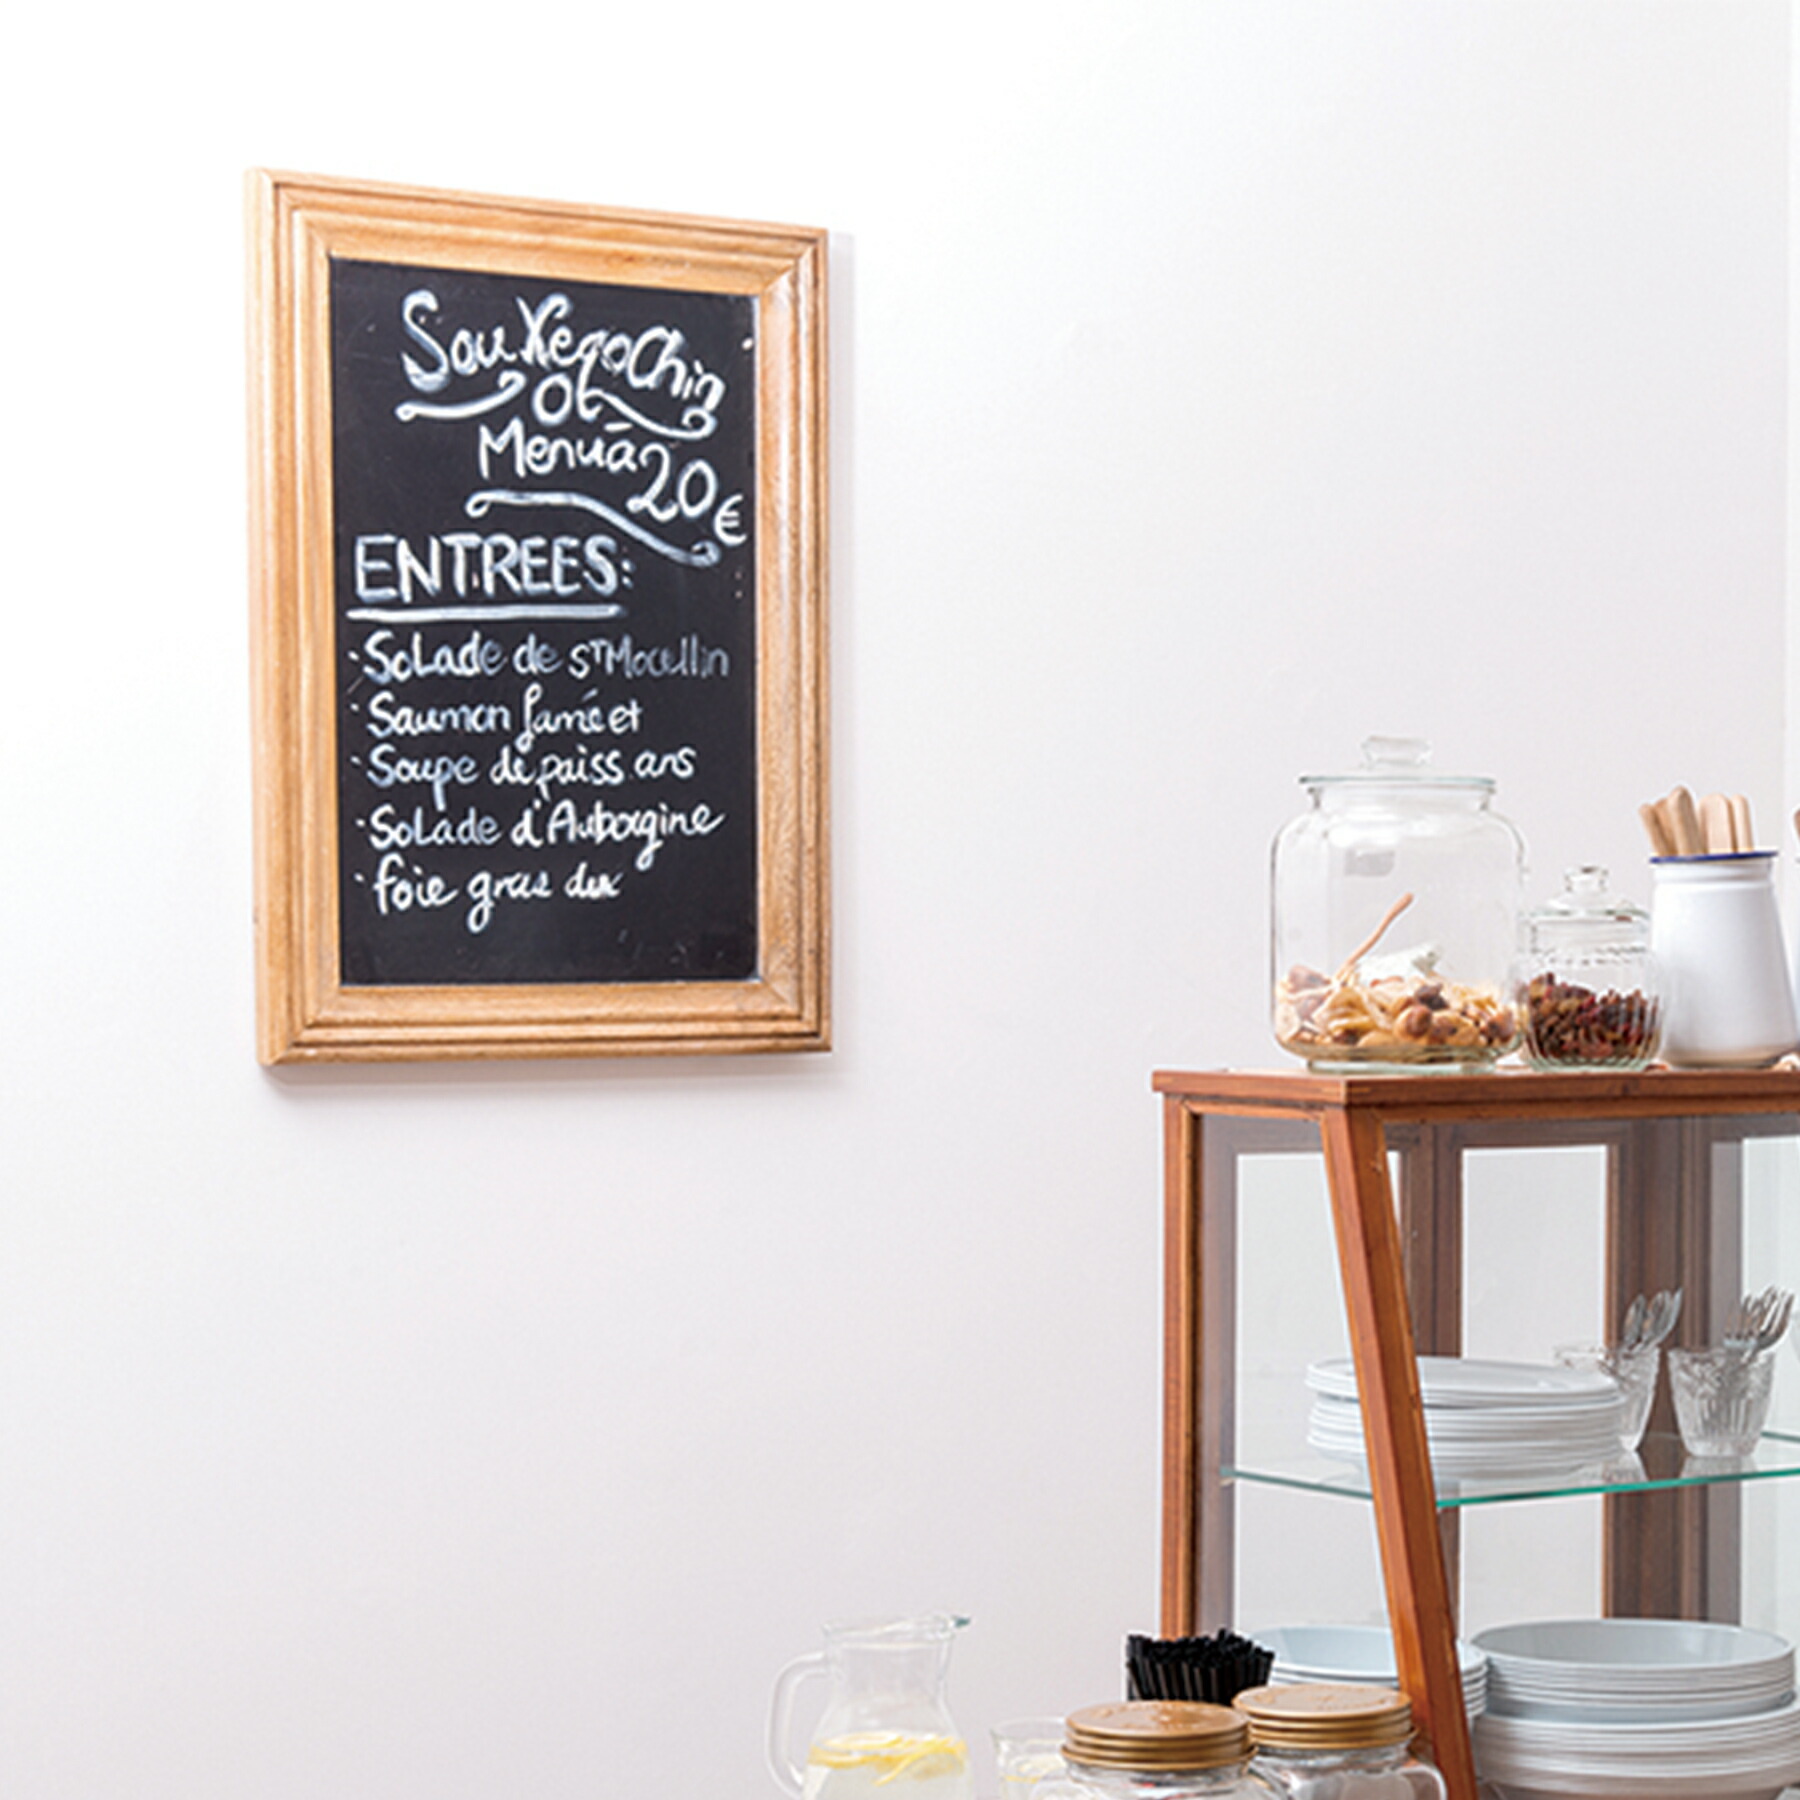 Menu à 20€
ENTREES:
· Solade de ST Mocellin
· Saumon famé et
· Soupe de paiss ans
· Solade d'Aubergine
· foie gras dux